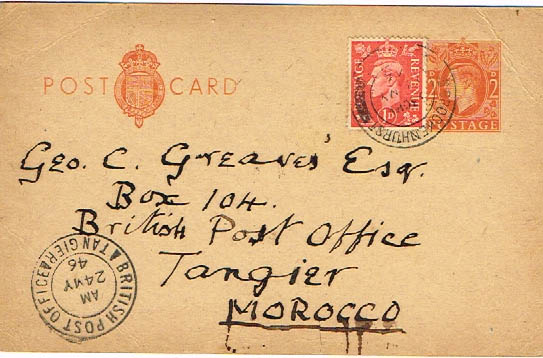 POST CARD
POSTAGE REVENUE
1D
D D
2 2
POSTAGE
Geo. C. Greaves Esqr.
Box 104.
British Post Office
Tangier
MOROCCO
BRITISH POST OFFICE TANGIER
AM
24 MY
46